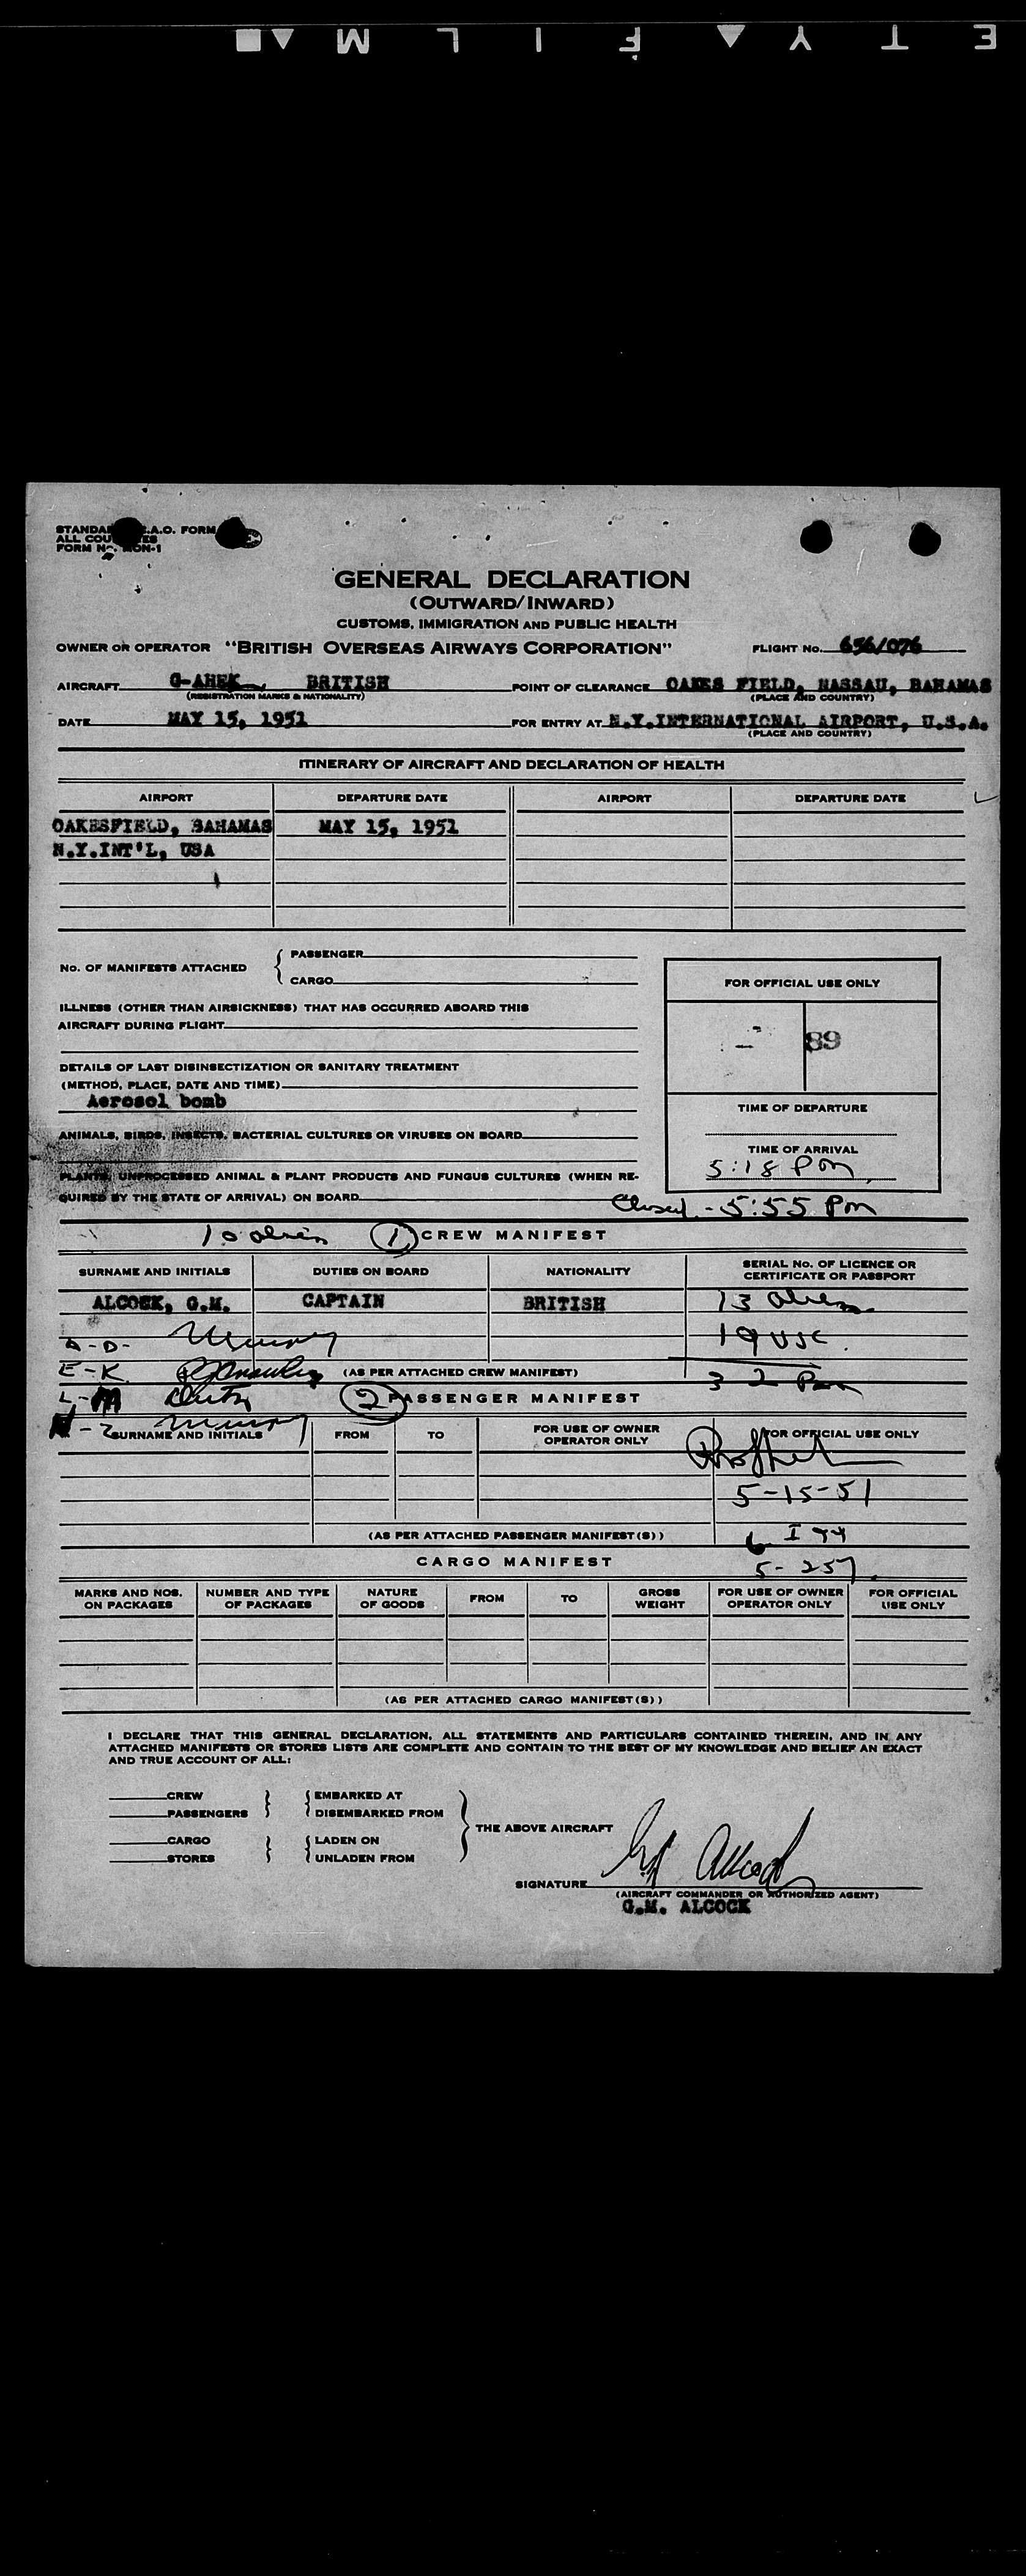 E T Y ▲ F I L M ▲ ■
STANDARD I.C.A.O. FORM
ALL COUNTRIES
FORM No. MON-1
GENERAL DECLARATION
(OUTWARD/INWARD)
CUSTOMS, IMMIGRATION AND PUBLIC HEALTH
OWNER OR OPERATOR "BRITISH OVERSEAS AIRWAYS CORPORATION" FLIGHT No. 656/076
AIRCRAFT G-AHEK, BRITISH POINT OF CLEARANCE OAKES FIELD, NASSAU, BAHAMAS
(REGISTRATION MARKS & NATIONALITY) (PLACE AND COUNTRY)
DATE MAY 15, 1951 FOR ENTRY AT N.Y.INTERNATIONAL AIRPORT, U.S.A.
(PLACE AND COUNTRY)
ITINERARY OF AIRCRAFT AND DECLARATION OF HEALTH
AIRPORT DEPARTURE DATE AIRPORT DEPARTURE DATE
OAKESFIELD, BAHAMAS MAY 15, 1951
N.Y.INT'L, USA
No. OF MANIFESTS ATTACHED { PASSENGER
CARGO
FOR OFFICIAL USE ONLY
ILLNESS (OTHER THAN AIRSICKNESS) THAT HAS OCCURRED ABOARD THIS
AIRCRAFT DURING FLIGHT
89
DETAILS OF LAST DISINSECTIZATION OR SANITARY TREATMENT
(METHOD, PLACE, DATE AND TIME)
Aerosol bomb
TIME OF DEPARTURE
ANIMALS, BIRDS, INSECTS, BACTERIAL CULTURES OR VIRUSES ON BOARD
TIME OF ARRIVAL
5:18 Pm
PLANTS, UNPROCESSED ANIMAL & PLANT PRODUCTS AND FUNGUS CULTURES (WHEN RE-
QUIRED BY THE STATE OF ARRIVAL) ON BOARD
Closed - 5:55 Pm
10 alien 1 CREW MANIFEST
SURNAME AND INITIALS DUTIES ON BOARD NATIONALITY SERIAL No. OF LICENCE OR
CERTIFICATE OR PASSPORT
ALCOCK, G.M. CAPTAIN BRITISH 13 alien
A-D- Murray 19 USC.
E-K. (AS PER ATTACHED CREW MANIFEST)
32 Pan
L-M 2 PASSENGER MANIFEST
N-Z Murray
SURNAME AND INITIALS FROM TO FOR USE OF OWNER
OPERATOR ONLY FOR OFFICIAL USE ONLY
5-15-51
(AS PER ATTACHED PASSENGER MANIFEST(S))
CARGO MANIFEST
5-257
MARKS AND NOS.
ON PACKAGES NUMBER AND TYPE
OF PACKAGES NATURE
OF GOODS FROM TO GROSS
WEIGHT FOR USE OF OWNER
OPERATOR ONLY FOR OFFICIAL
USE ONLY
(AS PER ATTACHED CARGO MANIFEST(S))
I DECLARE THAT THIS GENERAL DECLARATION, ALL STATEMENTS AND PARTICULARS CONTAINED THEREIN, AND IN ANY
ATTACHED MANIFESTS OR STORES LISTS ARE COMPLETE AND CONTAIN TO THE BEST OF MY KNOWLEDGE AND BELIEF AN EXACT
AND TRUE ACCOUNT OF ALL:
CREW } { EMBARKED AT
PASSENGERS } { DISEMBARKED FROM
THE ABOVE AIRCRAFT
CARGO } { LADEN ON
STORES } { UNLADEN FROM
SIGNATURE GM Alcock
(AIRCRAFT COMMANDER OR AUTHORIZED AGENT)
G.M. ALCOCK